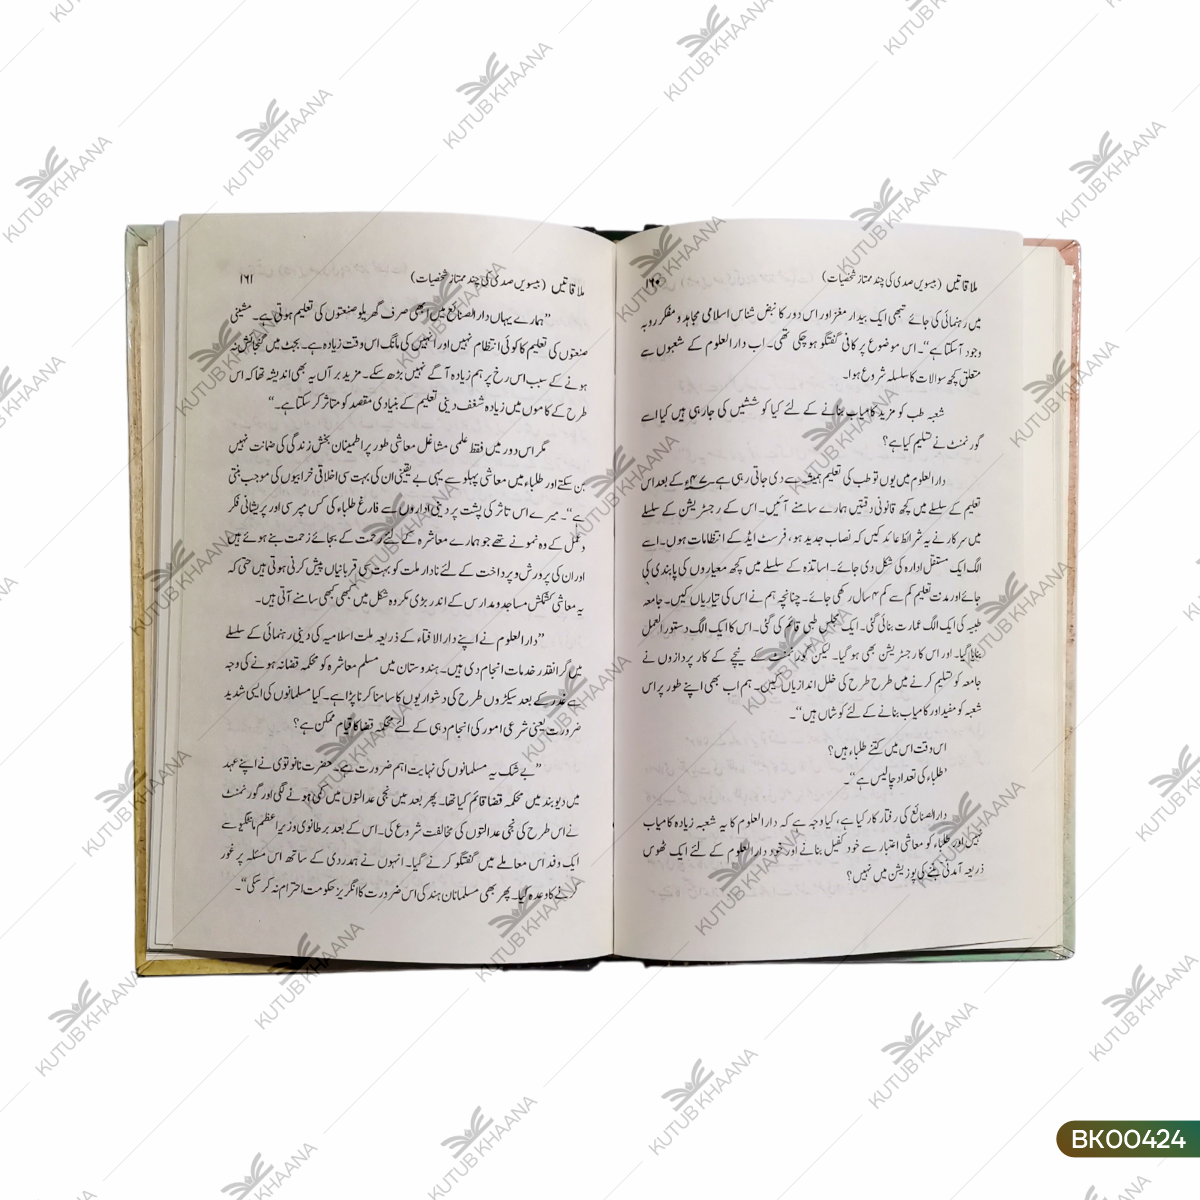 ملاقاتیں (بیسویں صدی کی چند ممتاز شخصیات) ۱۶۰
میں رہنمائی کی جائے تبھی ایک بیدار مغز اور اس دور کا نبض شناس اسلامی مجاہد و مفکر روبہ
وجود آسکتا ہے“۔ اس موضوع پر کافی گفتگو ہو چکی تھی۔ اب دارالعلوم کے شعبوں سے
متعلق کچھ سوالات کا سلسلہ شروع ہوا۔
شعبہ طب کو مزید کامیاب بنانے کے لئے کیا کوششیں کی جارہی ہیں کیا اسے
گورنمنٹ نے تسلیم کیا ہے؟
دارالعلوم میں یوں تو طب کی تعلیم ہمیشہ سے دی جاتی رہی ہے۔ ۴۷ء کے بعد اس
تعلیم کے سلسلے میں کچھ قانونی دقتیں ہمارے سامنے آئیں۔ اس کے رجسٹریشن کے سلسلے
میں سرکار نے یہ شرائط عائد کیں کہ نصاب جدید ہو، فرسٹ ایڈ کے انتظامات ہوں۔ اسے
الگ ایک مستقل ادارہ کی شکل دی جائے۔ اساتذہ کے سلسلے میں کچھ معیاروں کی پابندی کی
جائے اور مدت تعلیم کم سے کم ۴ سال رکھی جائے۔ چنانچہ ہم نے اس کی تیاریاں کیں۔ جامعہ
طبیہ کی ایک الگ عمارت بنائی گئی۔ ایک مجلس طبی قائم کی گئی۔ اس کا ایک الگ دستور العمل
بنایا گیا۔ اور اس کا رجسٹریشن بھی ہو گیا۔ لیکن گورنمنٹ کے نیچے کے کار پردازوں نے
جامعہ کو تسلیم کرنے میں طرح طرح کی خلل اندازیاں کیں۔ ہم اب بھی اپنے طور پر اس
شعبہ کو مفید اور کامیاب بنانے کے لئے کوشاں ہیں“۔
اس وقت اس میں کتنے طلباء ہیں؟
’طلباء کی تعداد چالیس ہے“۔
دارالصنائع کی رفتار کار کیا ہے، کیا وجہ ہے کہ دارالعلوم کا یہ شعبہ زیادہ کامیاب
نہیں اور طلباء کو معاشی اعتبار سے خود کفیل بنانے اور خود دارالعلوم کے لئے ایک ٹھوس
ذریعہ آمدنی بننے کی پوزیشن میں نہیں؟
ملاقاتیں (بیسویں صدی کی چند ممتاز شخصیات) ۱۶۱
”ہمارے یہاں دارالصنائع میں ابھی صرف گھریلو صنعتوں کی تعلیم ہوتی ہے۔ مشینی
صنعتوں کی تعلیم کا کوئی انتظام نہیں اور انہیں کی مانگ اس وقت زیادہ ہے۔ بجٹ میں گنجائش نہ
ہونے کے سبب اس رخ پر ہم زیادہ آگے نہیں بڑھ سکے۔ مزید برآں یہ بھی اندیشہ تھا کہ اس
طرح کے کاموں میں زیادہ شغف دینی تعلیم کے بنیادی مقصد کو متاثر کر سکتا ہے۔“
مگر اس دور میں فقط علمی مشاغل معاشی طور پر اطمینان بخش زندگی کی ضمانت نہیں
بن سکتے اور طلباء میں معاشی پہلو سے یہی بے یقینی ان کی بہت سی اخلاقی خرابیوں کی موجب بنتی
ہے“۔ میرے اس تاثر کی پشت پر دینی اداروں سے فارغ طلباء کی کس مپرسی اور پریشانی فکر
و عمل کے وہ نمونے تھے جو ہمارے معاشرہ کے لئے رحمت کے بجائے زحمت بنے ہوئے ہیں
اور ان کی پرورش و پرداخت کے لئے نادار ملت کو بہت سی قربانیاں پیش کرنی ہوتی ہیں حتی کہ
یہ معاشی کشمکش مساجد و مدارس کے اندر بڑی مکروہ شکل میں کبھی کبھی سامنے آتی ہیں۔
”دارالعلوم نے اپنے دارالافتاء کے ذریعہ ملت اسلامیہ کی دینی رہنمائی کے سلسلے
میں گرانقدر خدمات انجام دی ہیں۔ ہندوستان میں مسلم معاشرہ کو محکمہ قضا نہ ہونے کی وجہ
سے غدر کے بعد سیکڑوں طرح کی دشواریوں کا سامنا کرنا پڑا ہے۔ کیا مسلمانوں کی ایسی شدید
ضرورت یعنی شرعی امور کی انجام دہی کے لئے محکمہ قضا کا قیام ممکن ہے؟
”بے شک یہ مسلمانوں کی نہایت اہم ضرورت ہے۔ حضرت نانوتوی نے اپنے عہد
میں دیوبند میں محکمہ قضا قائم کیا تھا۔ پھر بعد میں نجی عدالتوں میں کمی ہونے لگی اور گورنمنٹ
نے اس طرح کی نجی عدالتوں کی مخالفت شروع کی۔ اس کے بعد برطانوی وزیر اعظم مانٹیگو سے
ایک وفد اس معاملے میں گفتگو کرنے گیا۔ انہوں نے ہمدردی کے ساتھ اس مسئلہ پر غور
کرنے کا وعدہ کیا۔ پھر بھی مسلمانان ہند کی اس ضرورت کا انگریز حکومت احترام نہ کر سکی“۔
KUTUB KHAANA
BK00424